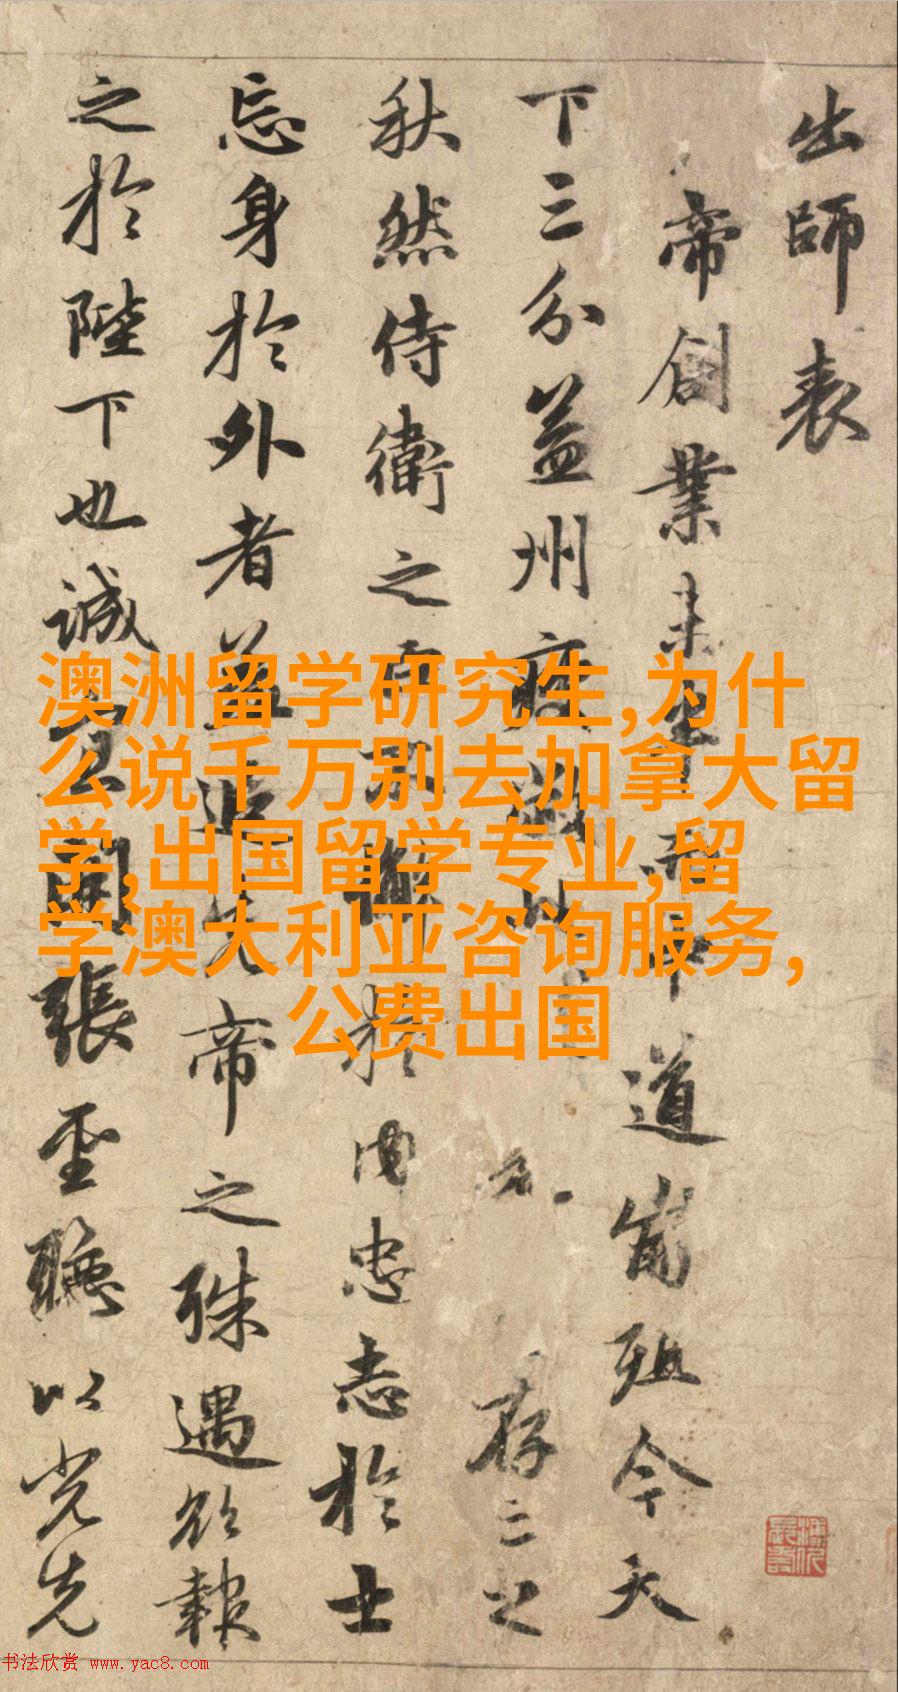 出師表
帝創業未中道崩殂今天
下三分益州疲弊此存亡之
秋然侍衛之臣不懈於内忠志於士
忘身於外者益追先帝之殊遇欲報
之於陛下也誠宜開張聖聽以光先
澳洲留学研究生,为什
么说千万别去加拿大留
学,出国留学专业,留
学澳大利亚咨询服务,
公费出国
书法欣赏 www.yac8.com